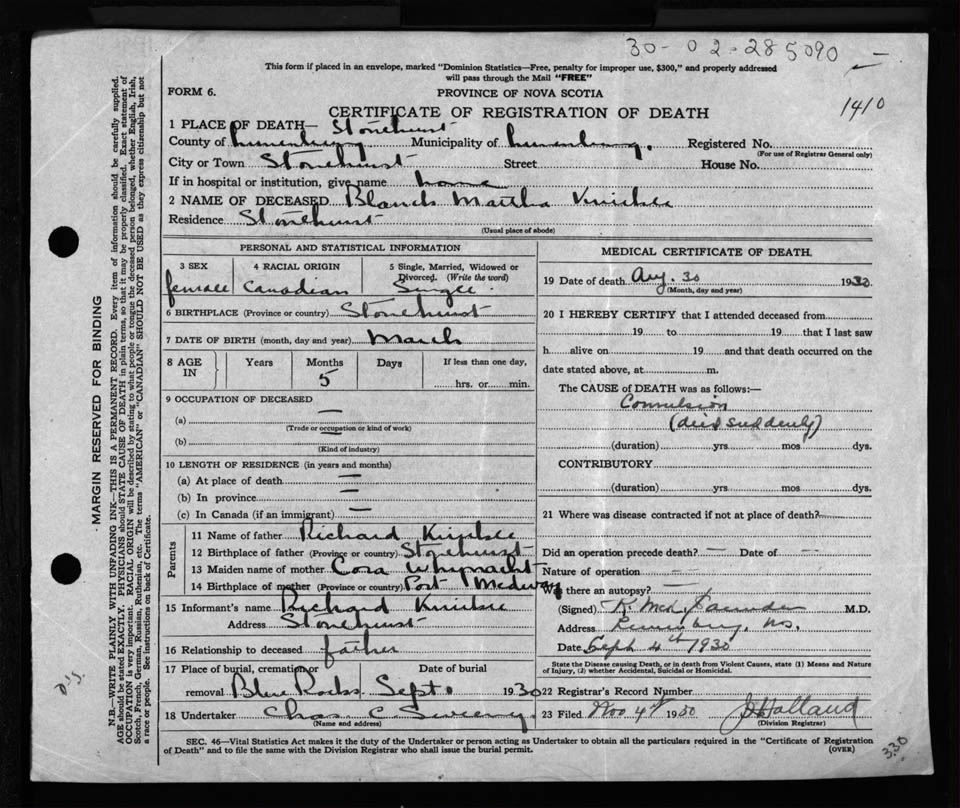 30-02-285090
This form if placed in an envelope, marked "Dominion Statistics—Free, penalty for improper use, $300," and properly addressed
will pass through the Mail "FREE"
FORM 6.
PROVINCE OF NOVA SCOTIA
1410
CERTIFICATE OF REGISTRATION OF DEATH
1 PLACE OF DEATH— Stonehurst
County of Lunenburg Municipality of Lunenburg. Registered No.
(For use of Registrar General only)
City or Town Stonehurst Street House No.
If in hospital or institution, give name home
2 NAME OF DECEASED Blanch Martha
Residence Stonehurst
(Usual place of abode)
PERSONAL AND STATISTICAL INFORMATION
3 SEX 4 RACIAL ORIGIN 5 Single, Married, Widowed or
Divorced. (Write the word)
female Canadian Single
6 BIRTHPLACE (Province or country) Stonehurst
7 DATE OF BIRTH (month, day and year) March
8 AGE IN Years Months Days If less than one day,
5 hrs. or min.
9 OCCUPATION OF DECEASED
(a) —
(Trade or occupation or kind of work)
(b) —
(Kind of industry)
10 LENGTH OF RESIDENCE (in years and months)
(a) At place of death —
(b) In province —
(c) In Canada (if an immigrant) —
Parents
11 Name of father Richard
12 Birthplace of father (Province or country) Stonehurst
13 Maiden name of mother Cora Whynacht
14 Birthplace of mother (Province or country) Port Medway
15 Informant's name Richard
Address Stonehurst
16 Relationship to deceased father
17 Place of burial, cremation or Date of burial
removal Blue Rocks Sept. 1930
18 Undertaker Chas. C. Sweeny
(Name and address)
MEDICAL CERTIFICATE OF DEATH.
19 Date of death Aug. 30 1930
(Month, day and year)
20 I HEREBY CERTIFY that I attended deceased from
19 to 19 that I last saw
h alive on 19 and that death occurred on the
date stated above, at m.
The CAUSE of DEATH was as follows:—
Convulsion
(died suddenly)
(duration) yrs mos dys.
CONTRIBUTORY
(duration) yrs mos dys.
21 Where was disease contracted if not at place of death?
Did an operation precede death? — Date of —
Nature of operation —
Was there an autopsy? —
(Signed) M.D.
Address Lunenburg, N.S.
Date Sept 4th 1930
State the Disease causing Death, or in death from Violent Causes, state (1) Means and Nature
of Injury, (2) whether Accidental, Suicidal or Homicidal.
22 Registrar's Record Number
23 Filed Nov 4th 1930 Holland
(Division Registrar)
SEC. 46—Vital Statistics Act makes it the duty of the Undertaker or person acting as Undertaker to obtain all the particulars required in the "Certificate of Registration
of Death" and to file the same with the Division Registrar who shall issue the burial permit.
(OVER)
330
MARGIN RESERVED FOR BINDING
N.B.—WRITE PLAINLY WITH UNFADING INK—THIS IS A PERMANENT RECORD. Every item of information should be carefully supplied.
AGE should be stated EXACTLY. PHYSICIANS should STATE CAUSE OF DEATH in plain terms, so that it may be properly classified. Exact statement of
OCCUPATION is very important. RACIAL ORIGIN will be described by stating to what people or tongue the deceased person belonged, whether English, Irish,
Scotch, French, German, Russian, Ruthenian, etc. The terms "AMERICAN" or "CANADIAN" SHOULD NOT BE USED as they express citizenship but not
a race or people. See instructions on back of Certificate.